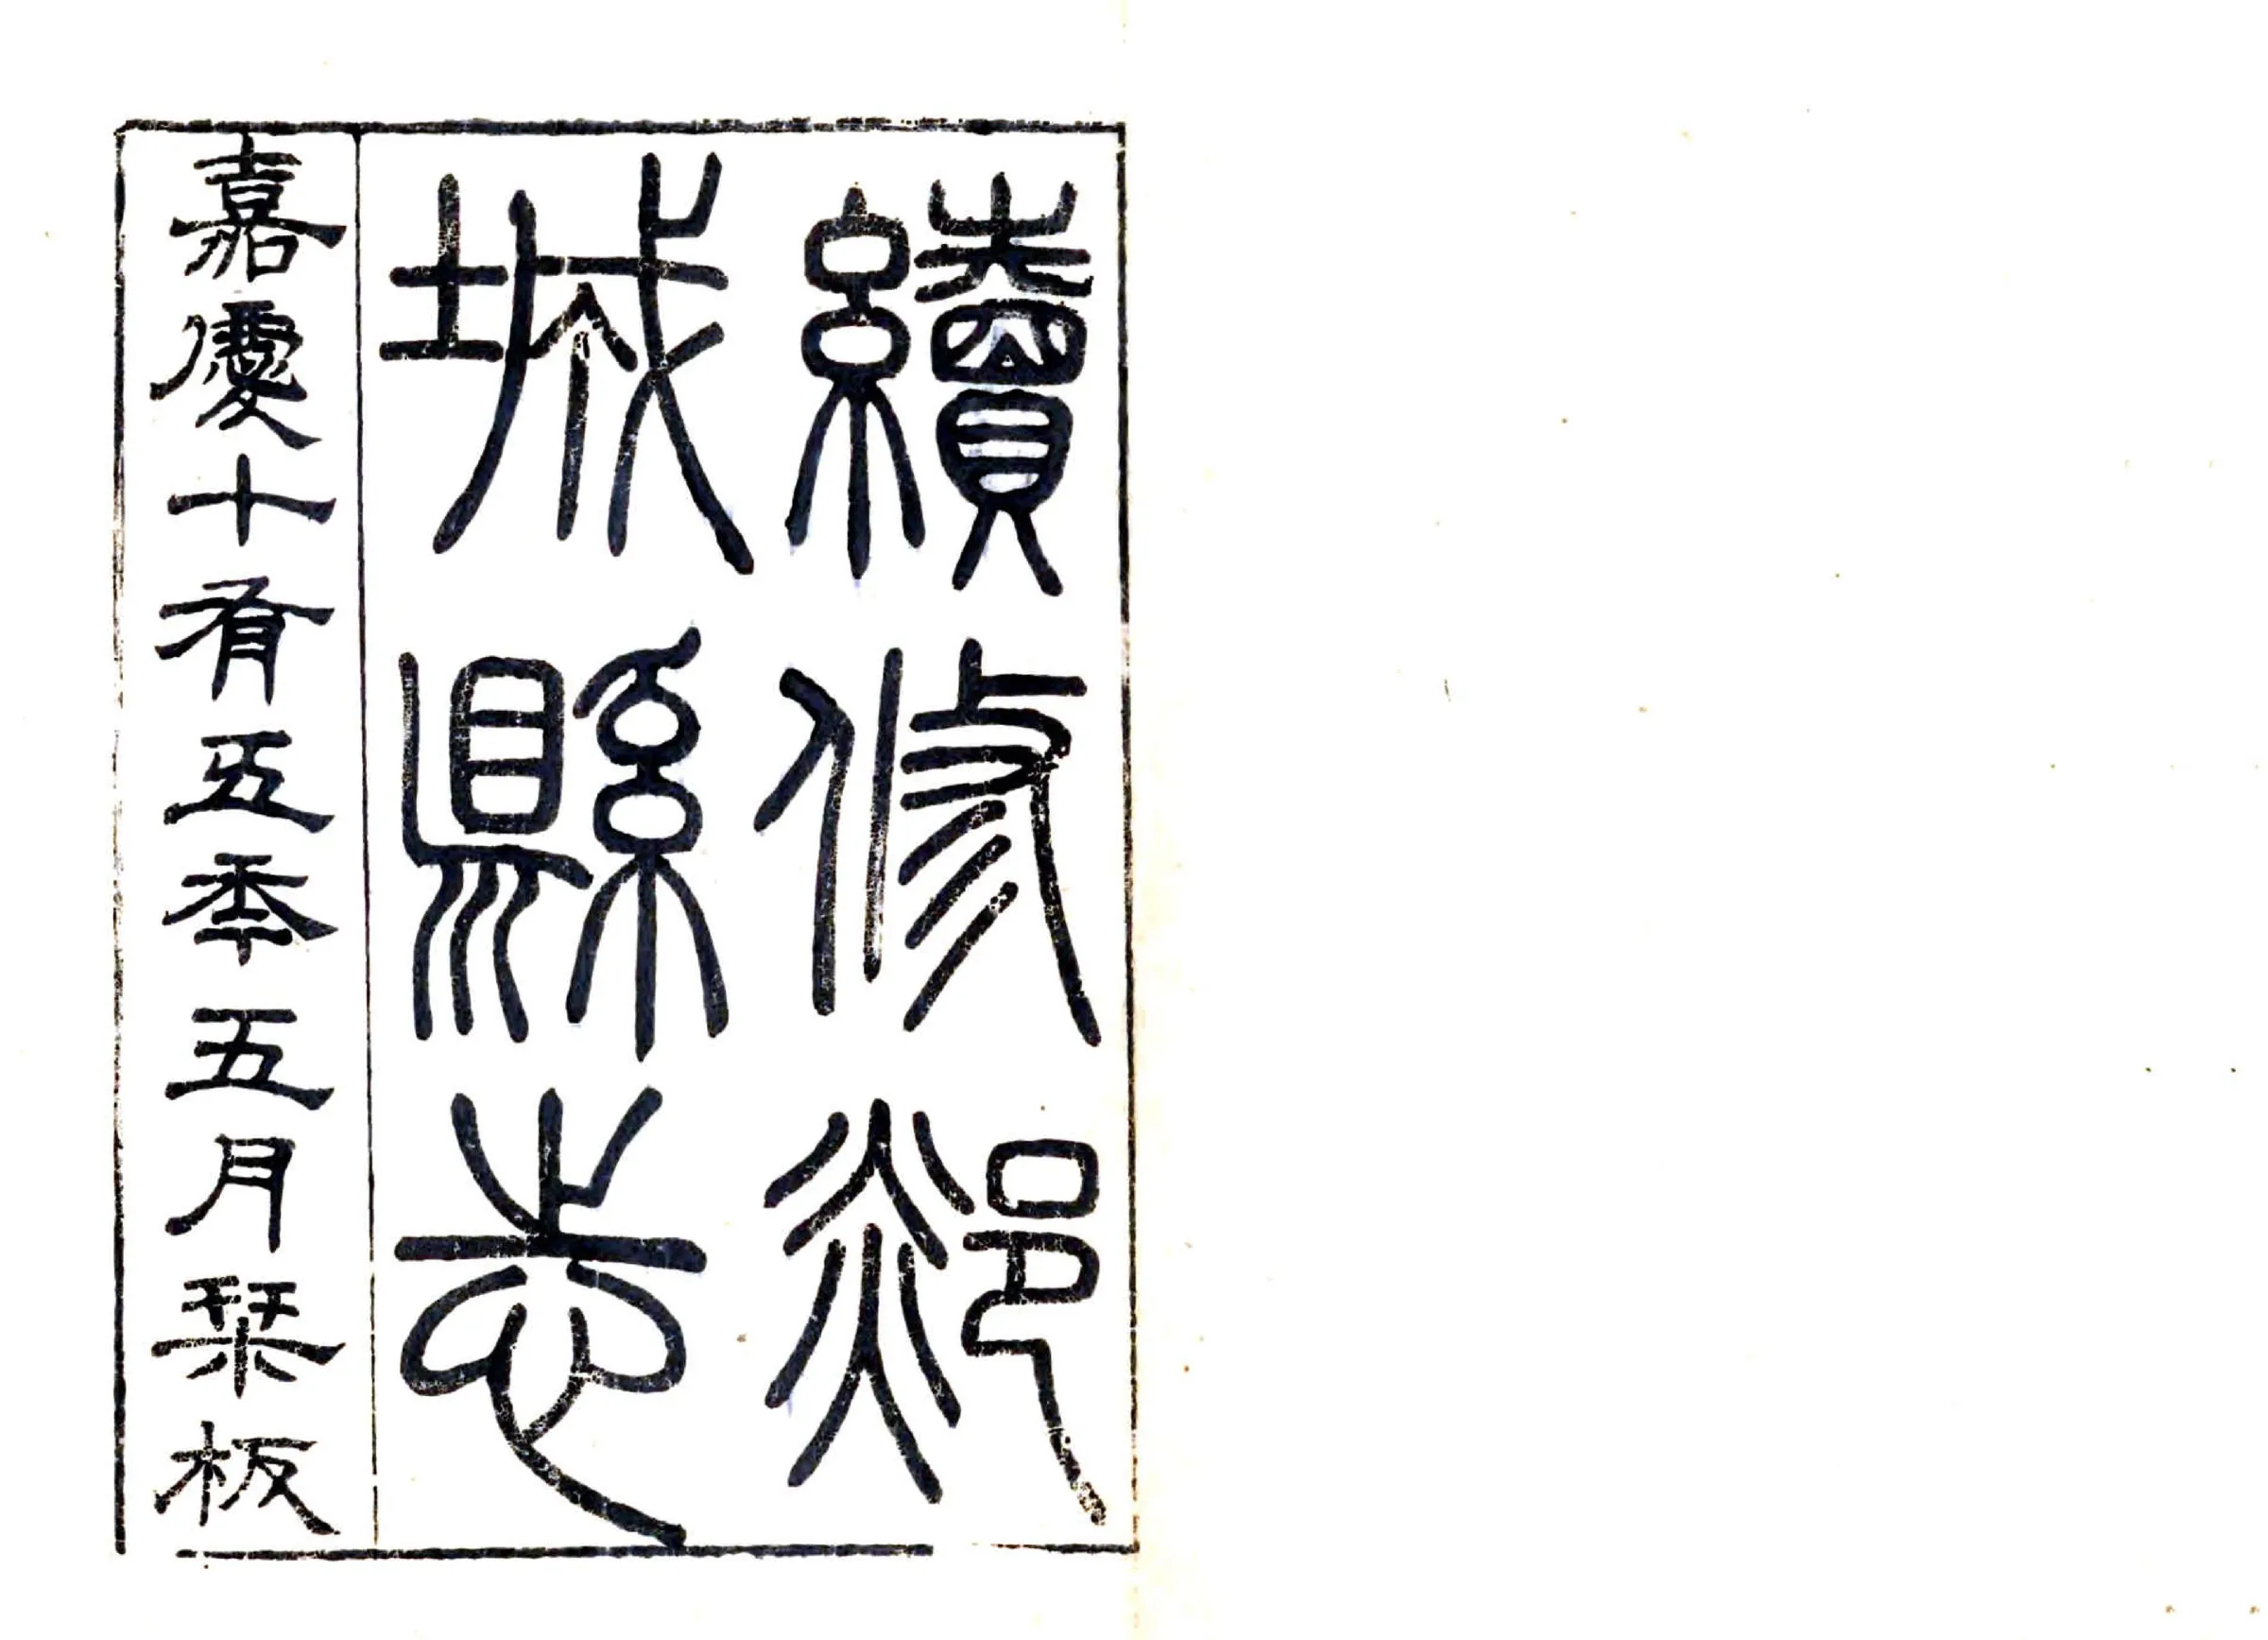 續修郯
城縣志
嘉慶十有五季五月栞板